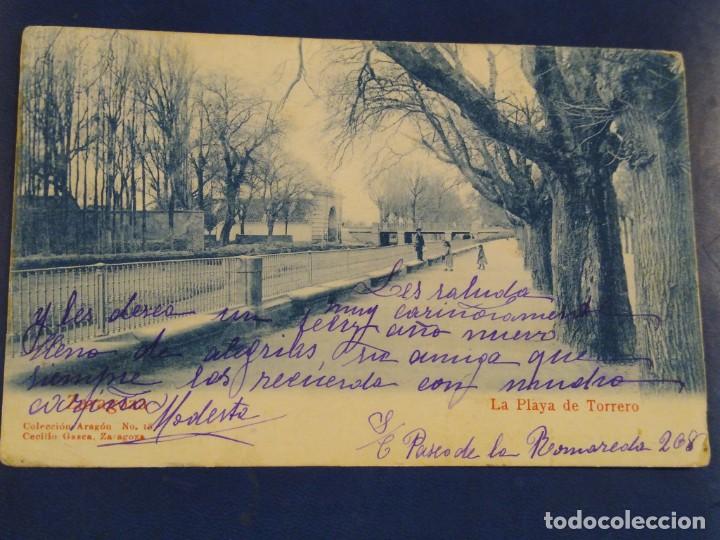 Les saluda
muy cariñosamente
y les desea un feliz año nuevo
lleno de alegrias su amiga que
siempre los recuerda con mucho
cariño Modesta
Zaragoza
La Playa de Torrero
Colección Aragón No. 15
Cecilio Gasca, Zaragoza
S/C Paseo de la Romareda 208
todocoleccion.net